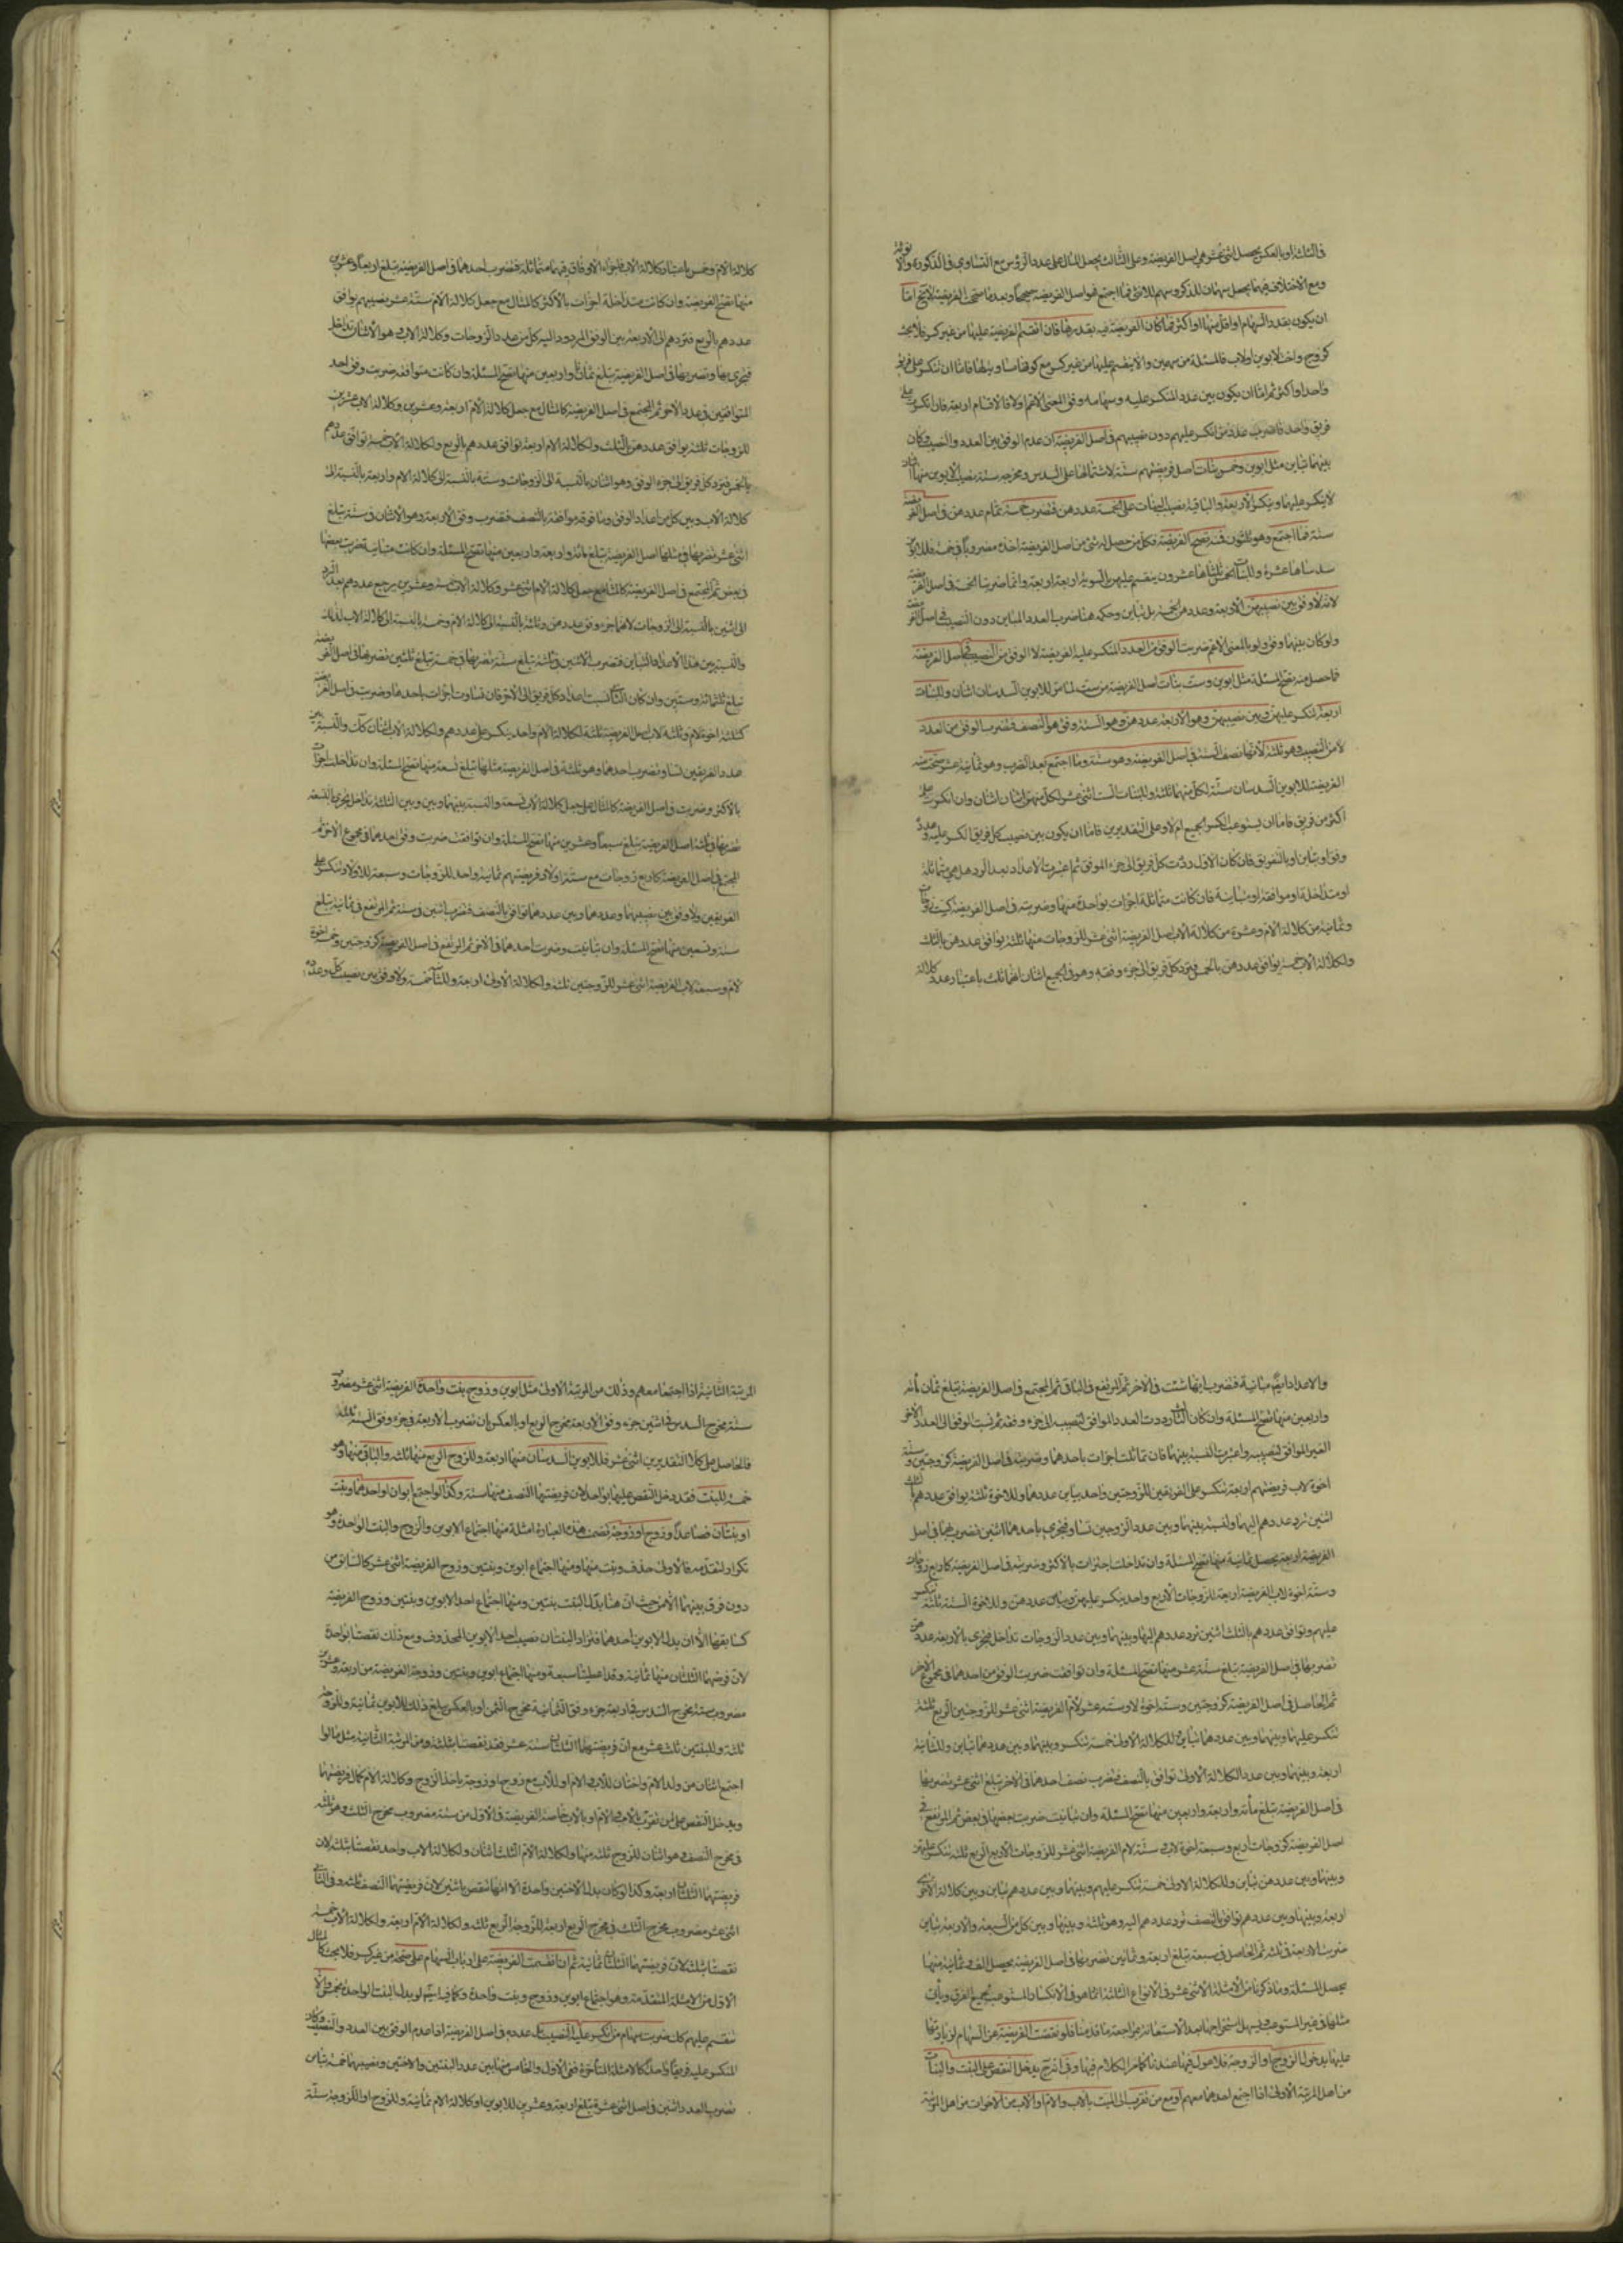 في الثلثة او بالعكس يحصل اثنى عشر هي اصل الفريضة وعلى الثالث يجعل المال على عدد الرؤس مع التساوي في الذكورة والانوثة
ومع الاختلاف فيهما يجعل سهمان للذكر وسهم للانثى فما اجتمع فهو اصل الفريضة
ان يكون بقدر السهام او اقل منها او اكثر فما كان الفريضة فيه بقدرها فان انقسم الفريضة عليها من غير كسر فلا بحث
كزوج واخت لابوين او لاب فالمسئلة من سهمين والا ينقسم عليها من غير كسر مع كونها مساوية لها فاما ان تنكسر على فريق
واحد او اكثر ثم اما ان يكون بين عدد المنكسر عليه وسهامه وفق بالمعنى الاعم او لا فالاقسام اربعة فان انكسرت على
فريق واحد فاضرب عدد من انكسر عليهم دون نصيبهم في اصل الفريضة ان عدم الوفق بين العدد والنصيب وكان
بينهما تباين مثل ابوين وخمس بنات اصل فريضتهم ستة لاشتمالها على السدس ومخرجه ستة نصيب الابوين منها اثنان
لا ينكسر عليهما وينكسر الاربعة والباقية نصيب البنات على الخمسة عددهن فتضرب خمسة تمام عددهن في اصل الفريضة
ستة فما اجتمع وهو ثلثون فمنه تصح الفريضة فكل من حصل له شئ من اصل الفريضة اخذه مضروبا في خمسة فللابوين
سدساها عشرة وللبنات الخمس ثلثاها عشرون ينقسم عليهن بالسوية اربعة اربعة وانما ضربنا الخمسة في اصل الفريضة
لانه لا وفق بين نصيبهن الاربعة وعددهن الخمسة بل تباين وحكمه هنا ضرب العدد المباين دون النصيب في اصل الفريضة
ولو كان بينهما وفق ولو بالمعنى الاعم ضربت الوفق من العدد المنكسر عليه الفريضة لا الوفق من النصيب في اصل الفريضة
فما حصل منه تصح المسئلة مثل ابوين وست بنات اصل الفريضة من ست للابوين السدسان اثنان وللبنات
اربعة تنكسر عليهن وبين نصيبهن وهو الاربعة وعددهن وهو الستة وفق هو النصف فتضرب الوفق من العدد
لا من النصيب وهو ثلثة لانها نصف الستة في اصل الفريضة وهو ستة وما اجتمع بعد الضرب وهو ثمانية عشر صحت منه
الفريضة للابوين السدسان ستة لكل منهما ثلثة وللبنات الست اثنى عشر لكل منهن اثنان اثنان وان انكسرت على
اكثر من فريق فاما ان يستوعب الكسر الجميع ام لا وعلى التقديرين فاما ان يكون بين نصيب كل فريق انكسر عليه وعدده
وفق او تباين او بالتفريق فان كان الاول رددت كل فريق الى جزء الموفق ثم اعتبرت الاعداد بعد الرد هل هي متماثلة
او متداخلة او موافقة او متباينة فان كانت متماثلة اجتزات بواحدة منها وضربته في اصل الفريضة كست زوجات
وثمانية من كلالة الام وعشرة من كلالة الاب اصل الفريضة اثنى عشر للزوجات منها ثلثة يوافق عددهن بالثلث
ولكلالة الاب خمسة يوافق عددهن بالخمس فترد كل فريق الى جزء وفقه وهو في الجميع اثنان باعتبار عدد كلالة
كلالة الام وخمس باعتبار كلالة الاب فاجزاء الاوفاق فيها متماثلة فتضرب احدها في اصل الفريضة تبلغ اربعا وعشرين
منها تصح الفريضة وان كانت متداخلة اجتزات بالاكثر كالمثال مع جعل كلالة الام ستة عشر نصيبهم يوافق
عددهم بالربع فتردهم الى الاربعة بين الوفق المردود اليه كل من عدد الزوجات وكلالة الاب وهو الاثنان تداخل
فتجزى بها وتضربها في اصل الفريضة تبلغ ثمانيا واربعين منها تصح المسئلة وان كانت متوافقة ضربت وفق احد
المتوافقين في عدد الاخر ثم المجتمع في اصل الفريضة كالمثال مع جعل كلالة الام اربعة وعشرين وكلالة الاب عشرين
للزوجات ثلثة يوافق عددهن بالثلث ولكلالة الام اربعة توافق عددهم بالربع ولكلالة الاب خمسة توافق عددهم
بالخمس فترد كل فريق الى جزء الوفق وهو اثنان بالنسبة الى الزوجات وستة بالنسبة الى كلالة الام واربعة بالنسبة الى
كلالة الاب وبين كل من اعداد الوفق وما فوقه موافقة بالنصف فتضرب وفق الاربعة وهو الاثنان في ستة تبلغ
اثنى عشر تضربها في مثلها اصل الفريضة تبلغ مائة واربعة واربعين منها تصح المسئلة وان كانت متباينة ضربت بعضها
في بعض ثم المجتمع في اصل الفريضة كالمثال مع جعل كلالة الام اثنى عشر وكلالة الاب خمسة وعشرين يرجع عددهم بعد الرد
الى اثنين بالنسبة الى الزوجات لانهما جزء وفق عددهن وثلثة بالنسبة الى كلالة الام وخمسة بالنسبة الى كلالة الاب لذلك
والنسبة بين هذه الاعداد التباين فتضرب الاثنين في ثلثة تبلغ ستة تضربها في خمسة تبلغ ثلثين تضربها في اصل الفريضة
تبلغ ثلثمائة وستين وان كان الثاني نسبت اعداد كل فريق الى الاخر فان تساوت اجتزات باحدها وضربت في اصل الفريضة
كثلثة اخوة لام وثلثة لاب اصل الفريضة ثلثة لكلالة الام واحد ينكسر على عددهم ولكلالة الاب اثنان كذلك والنسبة بين
عدد الفريقين تساو فتضرب احدهما وهو ثلثة في اصل الفريضة مثلها تبلغ تسعة منها تصح المسئلة وان تداخلت اجتزات
بالاكثر وضربت في اصل الفريضة كالمثال على جعل كلالة الاب تسعة والنسبة بينها وبين الثلثة تداخل تجزى بالتسعة
تضربها في ثلثة اصل الفريضة تبلغ سبعا وعشرين منها تصح المسئلة وان توافقت ضربت وفق احدهما في مجموع الاخر ثم
المجتمع في اصل الفريضة كاربع زوجات مع ستة اولاد فريضتهم ثمانية واحد للزوجات وسبعة للاولاد تنكسر على
الفريقين ولا وفق بين نصيبهما وعددهما وبين عددهما توافق بالنصف فتضرب اثنين في ستة ثم المرتفع في ثمانية تبلغ
ستة وتسعين منها تصح المسئلة وان تباينت ضربت احدهما في الاخر ثم المرتفع في اصل الفريضة كزوجتين وخمسة اخوة
لام وسبعة لاب الفريضة اثنى عشر للزوجتين ثلثة ولكلالة الاولى اربعة وللثانية خمسة ولا وفق بين نصيب كل وعدده
والاعداد ايضا متباينة فتضرب ايها شئت في الاخر ثم المرتفع في الباقي ثم المجتمع في اصل الفريضة تبلغ ثمان مأئة
واربعين منها تصح المسئلة وان كان الثالث رددت العدد الموافق لنصيبه الى جزء وفقه ثم نسبت الوفق الى العدد الاخر
الغير الموافق لنصيبه واعتبرت النسبة بينهما فان تماثلت اجتزات باحدهما وضربته في اصل الفريضة كزوجتين وستة
اخوة لاب فريضتهم اربعة تنكسر على الفريقين للزوجتين واحد يباين عددهما وللاخوة ثلثة يوافق عددهم بالثلث
اثنين ترد عددهم اليهما والنسبة بينهما وبين عدد الزوجين تساو فتجزى باحدهما اثنين تضربها في اصل
الفريضة اربعة يحصل ثمانية منها تصح المسئلة وان تداخلت اجتزات بالاكثر وضربته في اصل الفريضة كاربع زوجات
وستة اخوة لاب الفريضة اربعة للزوجات الاربع واحد ينكسر عليهن ويباين عددهن وللاخوة الستة ثلثة تنكسر
عليهم وتوافق عددهم بالثلث اثنين ترد عددهم اليها وبينها وبين عدد الزوجات تداخل فتجزى بالاربعة عددهن
تضربها في اصل الفريضة تبلغ ستة عشر منها تصح المسئلة وان توافقت ضربت الوفق من احدهما في مجموع الاخر
ثم الحاصل في اصل الفريضة كزوجتين وستة اخوة لاب وستة عشر لام الفريضة اثنى عشر للزوجتين الربع ثلثة
تنكسر عليهما وبينها وبين عددهما تباين وللكلالة الاولى خمسة تنكسر وبينها وبين عددها تباين وللثانية
اربعة وبينها وبين عدد الكلالة الاولى توافق بالنصف فتضرب نصف احدهما في الاخر تبلغ اثنى عشر تضربها
في اصل الفريضة تبلغ مأئة واربعة واربعين منها تصح المسئلة وان تباينت ضربت بعضها في بعض ثم المرتفع في
اصل الفريضة كزوجات اربع وسبعة اخوة لاب ستة لام الفريضة اثنى عشر للزوجات الاربع الربع ثلثة تنكسر عليهن
وبينها وبين عددهن تباين وللكلالة الاولى خمسة تنكسر عليهم وبينها وبين عددهم تباين وبين كلالة الاخرى
اربعة وبينها وبين عددهم توافق بالنصف ترد عددهم اليه وهو ثلثة وبينها وبين كل من السبعة والاربعة تباين
ضربت الاربعة في ثلثة ثم الحاصل في سبعة تبلغ اربعة وثمانين تضربها في اصل الفريضة يحصل الف وثمانية منها
يحصل المسئلة وما ذكرنا من الامثلة الاثنى عشر في الانواع الثلثة انما هو في الانكسار المستوعب لجميع الفرق ويأتي
مثلها في غير المستوعب ويسهل استخراجها بعد الاستعانة بمراجعة ما قدمنا فلو نقصت الفريضة عن السهام لو زيادتها
عليها بدخول الزوج او الزوجة فلا عول فيها عندنا كما مر الكلام فيها وفي انه يدخل النقص على البنت والبنات
من اهل المرتبة الاولى اذا اجتمع احدهما معهم او مع من تقرب الى الميت بالاب والام او الاب من الاخوات من اهل المرتبة
المرتبة الثانية اذا اجتمعا معهم وذلك من المرتبة الاولى مثل ابوين وزوج بنت واحدة الفريضة اثنى عشر مضروب
ستة مخرج السدس في اثنين جزء وفق الاربعة مخرج الربع او بالعكس بان تضرب الاربعة في جزء وفق الستة ثلثة
فالحاصل على كلا التقديرين اثنى عشر فللابوين السدسان منها اربعة وللزوج الربع منها ثلثة والباقي منها وهو
خمسة للبنت فقد دخل النقص عليها بواحد لان فريضتها النصف منها ستة وكذا لو اجتمع ابوان او احدهما وبنت
او بنتان فصاعدا وزوج او زوجة تضمنت هذه العبارة امثلة منها اجتماع الابوين والزوج والبنت الواحدة وهو
تكرار لتقدمه فالاولى حذف وبنت منها ومنها اجتماع ابوين وبنتين وزوج الفريضة اثنى عشر كالسابق من
دون فرق بينهما الا من حيث ان هنا بدل البنت بنتين ومنها اجتماع احد الابوين وبنتين وزوج الفريضة
كسابقها الا ان بدل الابوين احدهما فتزاد البنتان نصيب احد الابوين المحذوف ومع ذلك نقصتا بواحدة
لان فرضهما الثلثان منها ثمانية وقد اعطيتا سبعة ومنها اجتماع ابوين وبنتين وزوجة الفريضة من اربعة وعشرين
مضروب ستة مخرج السدس في اربعة جزء وفق الثمانية مخرج الثمن او بالعكس يبلغ ذلك للابوين ثمانية وللزوجة
ثلثة وللبنتين ثلث عشر مع ان فريضتهما الثلثان ستة عشر فقد نقصتا بثلثة ومن المرتبة الثانية مثل ما لو
اجتمع اثنان من ولد الام واختان للاب والام او للاب مع زوج او زوجة ياخذ الزوج وكلالة الام كمال فريضتهما
ويدخل النقص على من تقرب بالاب والام او بالاب خاصة الفريضة في الاول من ستة مضروب مخرج الثلث وهو ثلثة
في مخرج النصف وهو اثنان للزوج ثلثة منها ولكلالة الام الثلث اثنان ولكلالة الاب واحد نقصتا بثلثة لان
فريضتهما الثلثان اربعة وكذا لو كان بدل الاختين واحدة الا انها تنقص باثنين لان فريضتها النصف ثلثة وفي الثاني
اثنى عشر مضروب مخرج الثلث في مخرج الربع اربعة للزوجة الربع ثلثة ولكلالة الام اربعة ولكلالة الاب خمسة
نقصتا بثلثة لان فريضتهما الثلثان ثمانية ثم ان انقسمت الفريضة على ارباب السهام على صحة من غير كسر فلا بحث كالمثال
الاول من الامثلة المتقدمة وهو اجتماع ابوين وزوج وبنت واحدة لو بدل البنت الواحدة بخمس والا
تنقسم عليهم كك ضربت سهام من انكسر عليه النصيب بل عدده في اصل الفريضة اذا عدم الوفق بين العدد والنصيب وكان
المنكسر عليه فريقا واحدا كالامثلة المتأخرة ففي الاول والخامس منها بين عدد البنتين والاختين ونصيبهما خمسة تباين
تضرب العدد اثنين في اصل اثنى عشرة تبلغ اربعة وعشرين للابوين او كلالة الام ثمانية وللزوج او للزوجة ستة